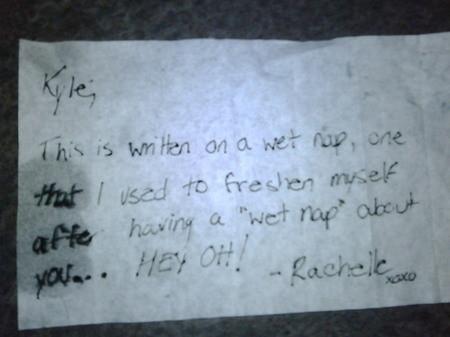 Kyle;
This is written on a wet nap, one
that I used to freshen myself
after having a "wet nap" about
you... HEY OH!
- Rachelle
xoxo